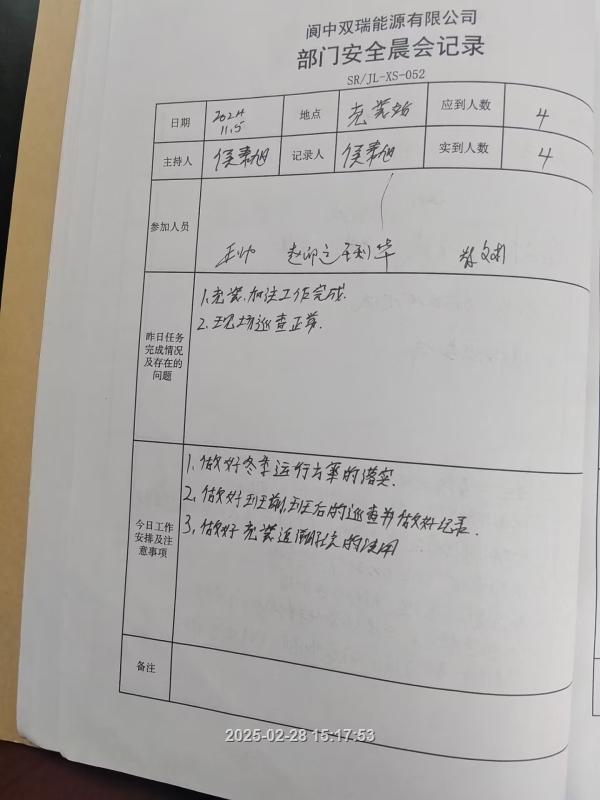 阆中双瑞能源有限公司
部门安全晨会记录
SR/JL-XS-052
日期 2024 11.5 地点 充装站 应到人数 4
主持人 侯素旭 记录人 侯素旭 实到人数 4
参加人员 王帅
昨日任务完成情况及存在的问题
1、充装、加注工作完成.
2、现场巡查正常.
今日工作安排及注意事项
1、做好冬季运行方案的落实.
2、做好班前、班后的巡查并做好记录.
3、做好充装的使用
备注
2025-02-28 15:17:53